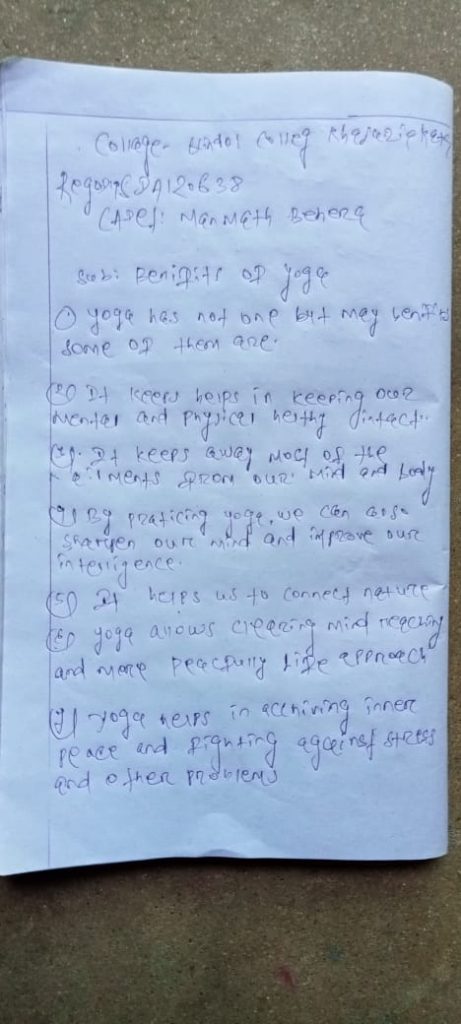 College- Hindol Colleg Khajuriakata
CADE/: Manmath Behera
Sub: Benifits of yoga
① yoga has not one but may benifits
some of them are.
It keeps helps in keeping our
mental and physical helthy intact.
It keeps away most of the
ailments from our mind and body
By praticing yoga, we can also
sharpen our mind and improve our
intelligence.
(5) It helps us to connect nature
(6) yoga allows clearing mind
and more peacfully life approach
(7) yoga helps in acchiving inner
peace and fighting against stress
and other problems